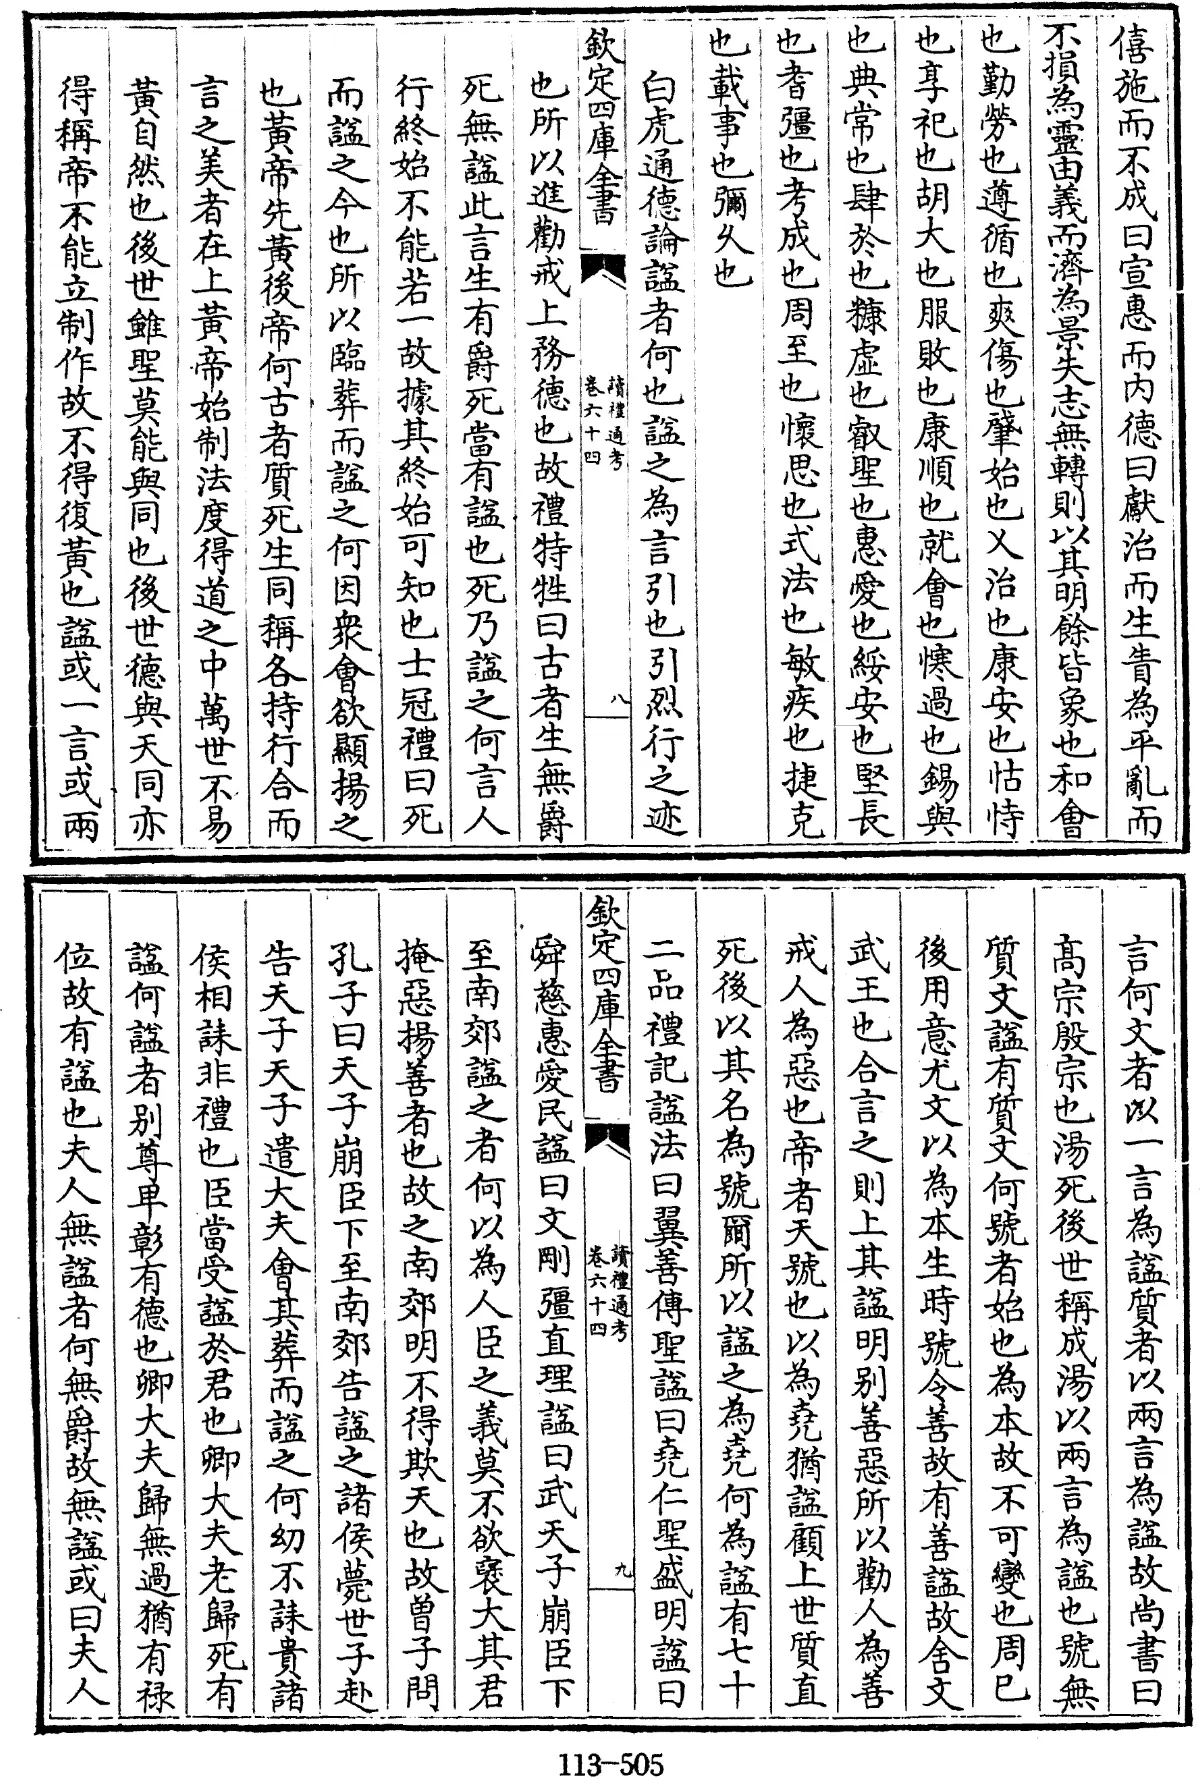 僖施而不成曰宣惠而内德曰獻治而生眚為平亂而
不損為靈由義而濟為景失志無轉則以其明餘皆象也和會
也勤勞也遵循也爽傷也肇始也乂治也康安也怙恃
也享祀也胡大也服敗也康順也就會也㥶過也錫與
也典常也肆於也糠虛也叡聖也惠愛也綏安也堅長
也耆彊也考成也周至也懷思也式法也敏疾也捷克
也載事也彌乆也
白虎通德論諡者何也諡之為言引也引烈行之迹
欽定四庫全書
讀禮通考
卷六十四
八
也所以進勸戒上務德也故禮特牲曰古者生無爵
死無諡此言生有爵死當有諡也死乃諡之何言人
行終始不能若一故據其終始可知也士冠禮曰死
而諡之今也所以臨葬而諡之何因衆會欲顯揚之
也黃帝先黃後帝何古者質死生同稱各持行合而
言之美者在上黃帝始制法度得道之中萬世不易
黃自然也後世雖聖莫能與同也後世德與天同亦
得稱帝不能立制作故不得復黃也諡或一言或兩
言何文者以一言為諡質者以兩言為諡故尚書曰
高宗殷宗也湯死後世稱成湯以兩言為諡也號無
質文諡有質文何號者始也為本故不可變也周已
後用意尤文以為本生時號令善故有善諡故舍文
武王也合言之則上其諡明别善惡所以勸人為善
戒人為惡也帝者天號也以為堯猶諡顧上世質直
死後以其名為號爾所以諡之為堯何為諡有七十
二品禮記諡法曰翼善傳聖諡曰堯仁聖盛明諡曰
欽定四庫全書
讀禮通考
卷六十四
九
舜慈惠愛民諡曰文剛彊直理諡曰武天子崩臣下
至南郊諡之者何以為人臣之義莫不欲襃大其君
掩惡揚善者也故之南郊明不得欺天也故曽子問
孔子曰天子崩臣下至南郊告諡之諸侯薨世子赴
告天子天子遣大夫會其葬而諡之何幼不誄貴諸
侯相誄非禮也臣當受諡於君也卿大夫老歸死有
諡何諡者别尊卑彰有德也卿大夫歸無過猶有禄
位故有諡也夫人無諡者何無爵故無諡或曰夫人
113-505